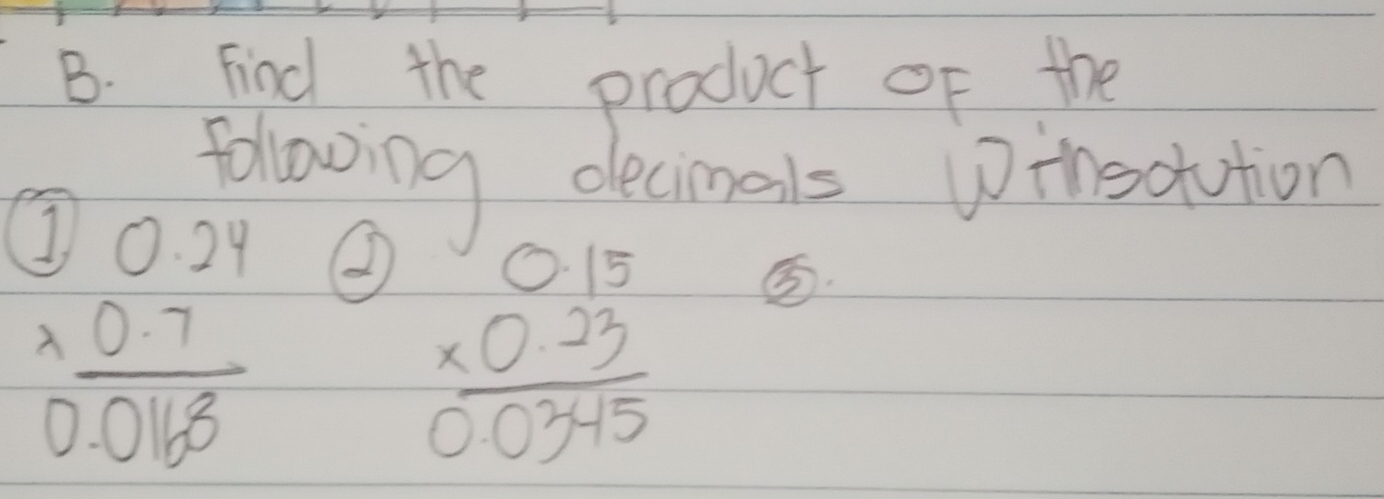 B. Find the product OF the
following decimals Withsolution
① 0.24 ② 0.15 ③.
x 0.7 x 0.23
0.0168 0.0345